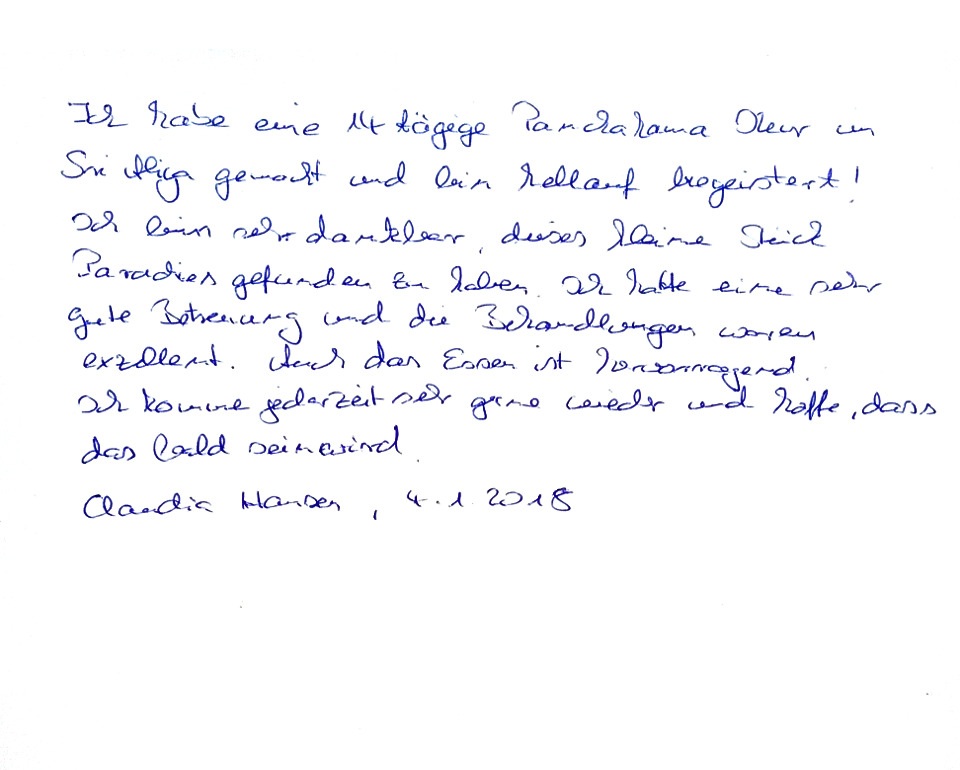 Ich habe eine 14 tägige Panchakama Kur in
Sri gemacht und bin hellauf begeistert!
Ich bin sehr dankbar, dieses kleine Stück
Paradies gefunden zu haben. Ich hatte eine sehr
gute Betreuung und die Behandlungen waren
exzellent. Auch das Essen ist hervorragend.
Ich komme jederzeit sehr gerne wieder und hoffe, dass
das bald sein wird.
Claudia Hansen, 4.1.2018